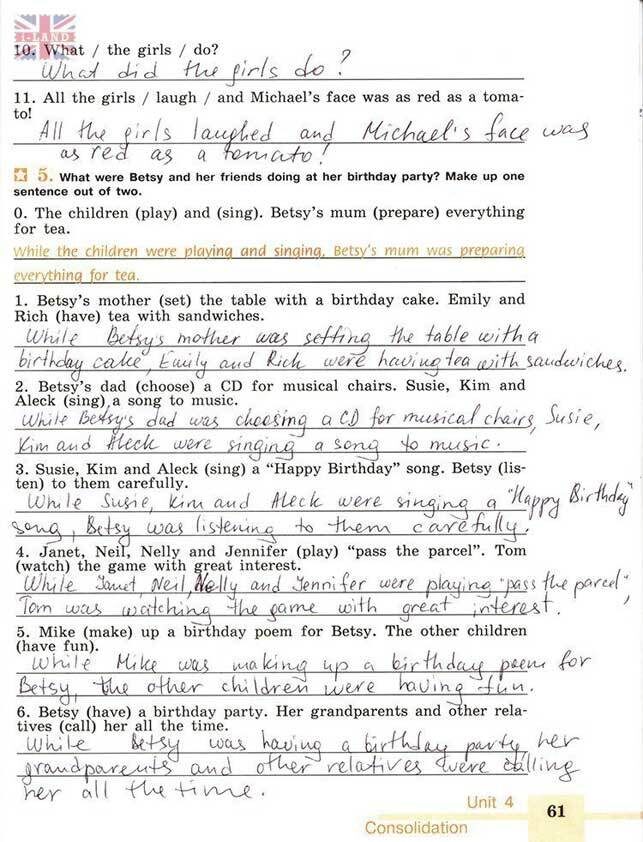 I-LAND
10. What / the girls / do?
What did the girls do?
11. All the girls / laugh / and Michael's face was as red as a toma-
to!
All the girls laughed and Michael's face was
as red as a tomato!
5. What were Betsy and her friends doing at her birthday party? Make up one
sentence out of two.
0. The children (play) and (sing). Betsy's mum (prepare) everything
for tea.
While the children were playing and singing, Betsy's mum was preparing
everything for tea.
1. Betsy's mother (set) the table with a birthday cake. Emily and
Rich (have) tea with sandwiches.
While Betsy's mother was setting the table with a
birthday cake, Emily and Rick were having tea with sandwiches.
2. Betsy's dad (choose) a CD for musical chairs. Susie, Kim and
Aleck (sing) a song to music.
While Betsy's dad was choosing a CD for musical chairs, Susie,
Kim and Aleck were singing a song to music.
3. Susie, Kim and Aleck (sing) a “Happy Birthday” song. Betsy (lis-
ten) to them carefully.
While Susie, Kim and Aleck were singing a "Happy Birthday"
song, Betsy was listening to them carefully.
4. Janet, Neil, Nelly and Jennifer (play) “pass the parcel”. Tom
(watch) the game with great interest.
While Janet, Neil, Nelly and Jennifer were playing "pass the parcel",
Tom was watching the game with great interest.
5. Mike (make) up a birthday poem for Betsy. The other children
(have fun).
While Mike was making up a birthday poem for
Betsy, the other children were having fun.
6. Betsy (have) a birthday party. Her grandparents and other rela-
tives (call) her all the time.
While Betsy was having a birthday party, her
grandparents and other relatives were calling
her all the time.
Unit 4
61
Consolidation